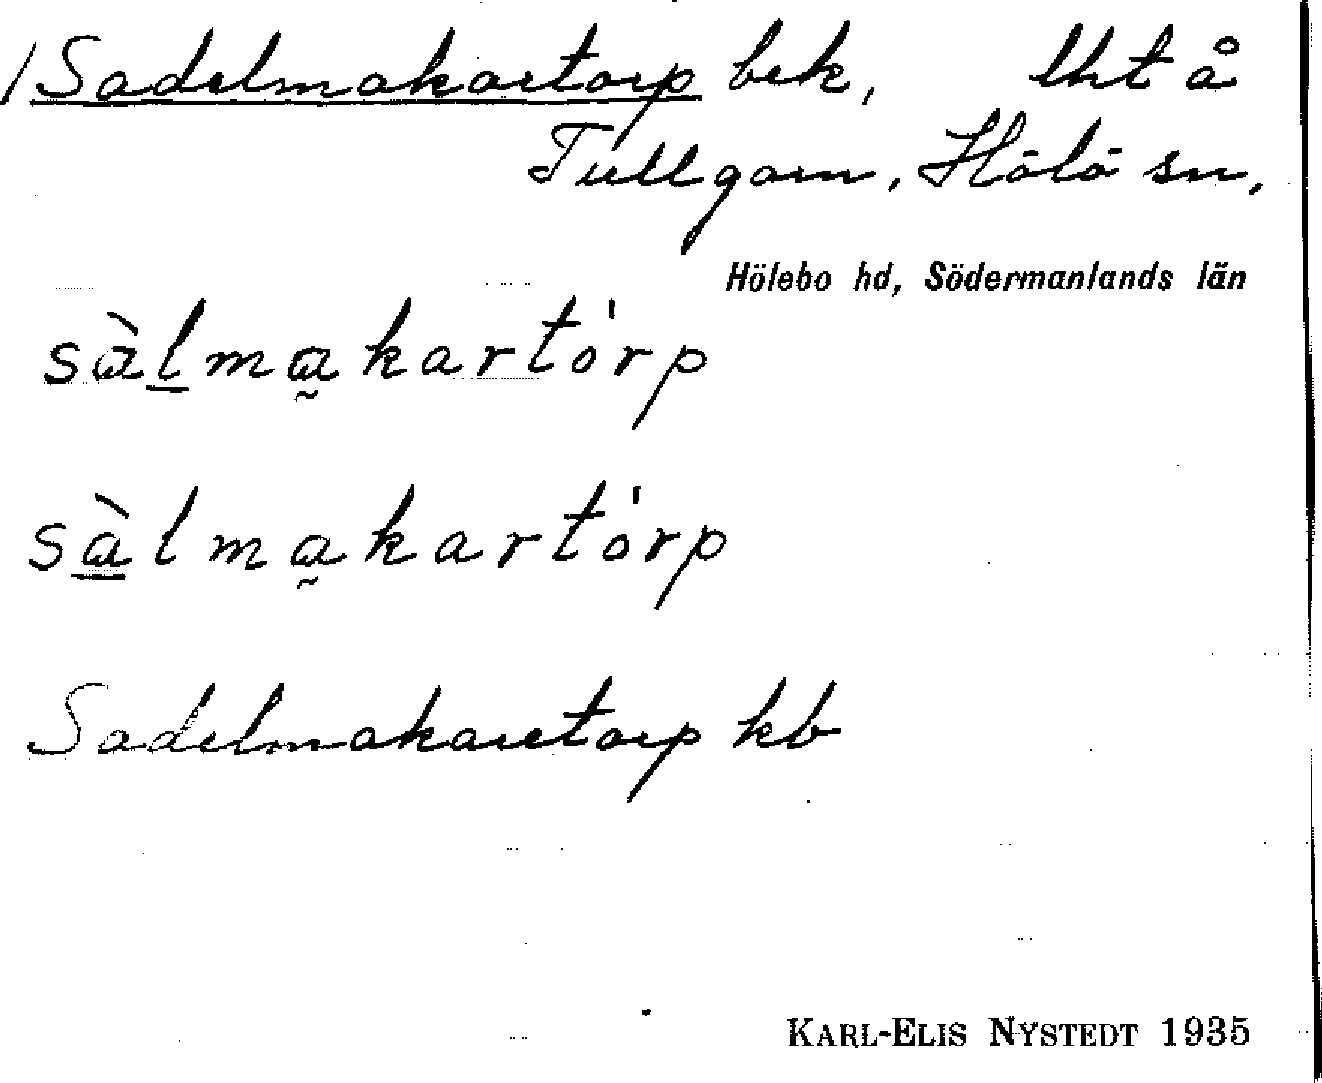 /Sadelmakartorp bek, lht å
Tullgarn, Hölö sn,
Hölebo hd, Södermanlands län
sàl̲ma̰kartórp
sà̲lma̰kartórp
Sadelmakaretorp kb
KARL-ELIS NYSTEDT 1935